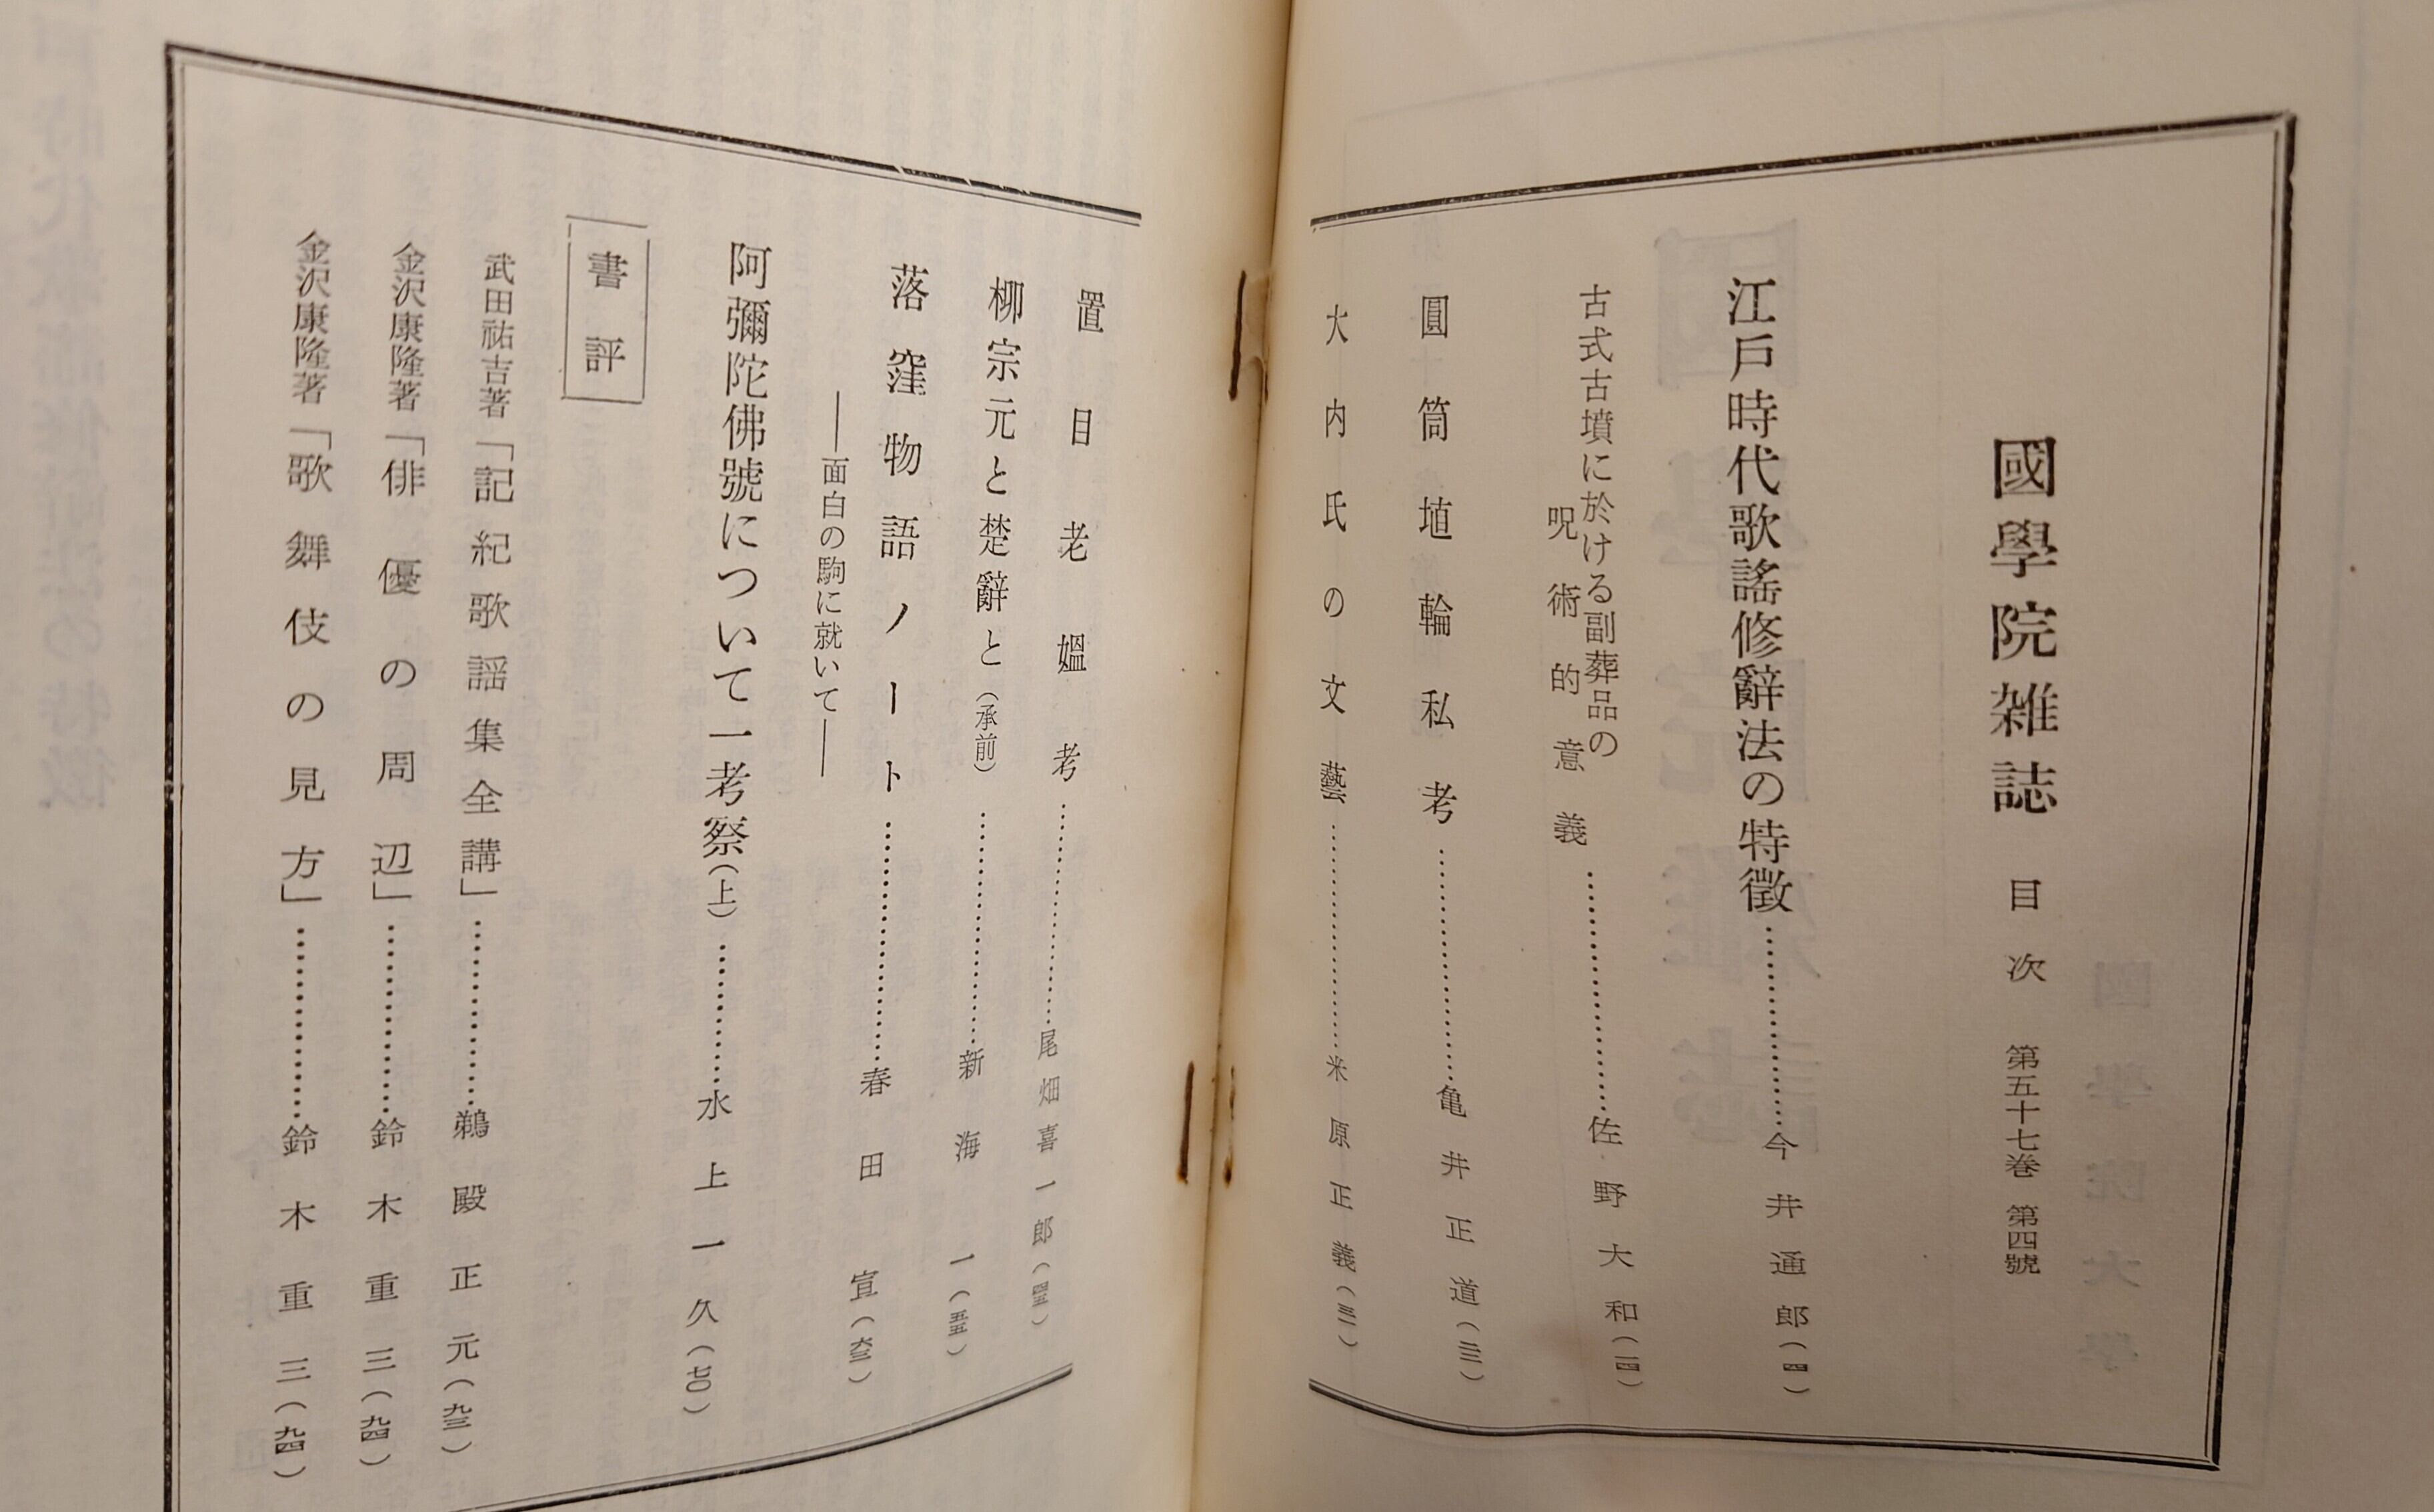 國學院雑誌 目次 第五十七巻 第四號
江戸時代歌謠修辭法の特徴……………今井通郎（四）
古式古墳に於ける副葬品の
呪術的意義……………佐野大和（一四）
圓筒埴輪私考……………亀井正道（二三）
大内氏の文藝……………米原正義（三一）
置目老媼考……………尾畑喜一郎（四五）
柳宗元と楚辭と（承前）……………新海一（五五）
落窪物語ノート……………春田宜（六三）
――面白の駒に就いて――
阿彌陀佛號について一考察（上）……………水上一久（七〇）
書評
武田祐吉著「記紀歌謡集全講」……………鵜殿正元（九三）
金沢康隆著「俳優の周辺」……………鈴木重三（九四）
金沢康隆著「歌舞伎の見方」……………鈴木重三（九四）